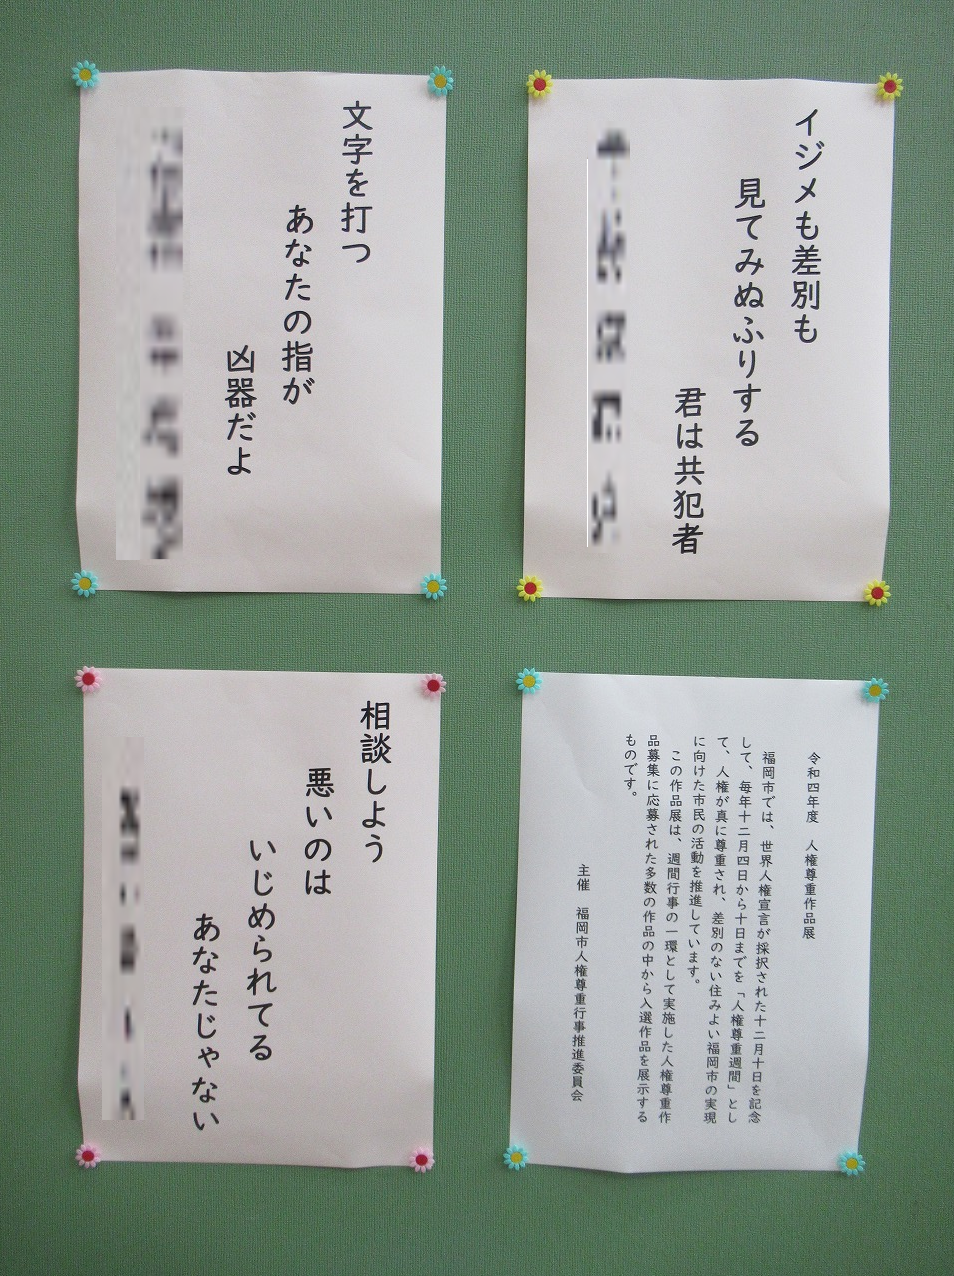 イジメも差別も
見てみぬふりする
君は共犯者
文字を打つ
あなたの指が
凶器だよ
令和四年度　人権尊重作品展
福岡市では、世界人権宣言が採択された十二月十日を記念
して、毎年十二月四日から十日までを「人権尊重週間」とし
て、人権が真に尊重され、差別のない住みよい福岡市の実現
に向けた市民の活動を推進しています。
この作品展は、週間行事の一環として実施した人権尊重作
品募集に応募された多数の作品の中から入選作品を展示する
ものです。
主催　福岡市人権尊重行事推進委員会
相談しよう
悪いのは
いじめられてる
あなたじゃない